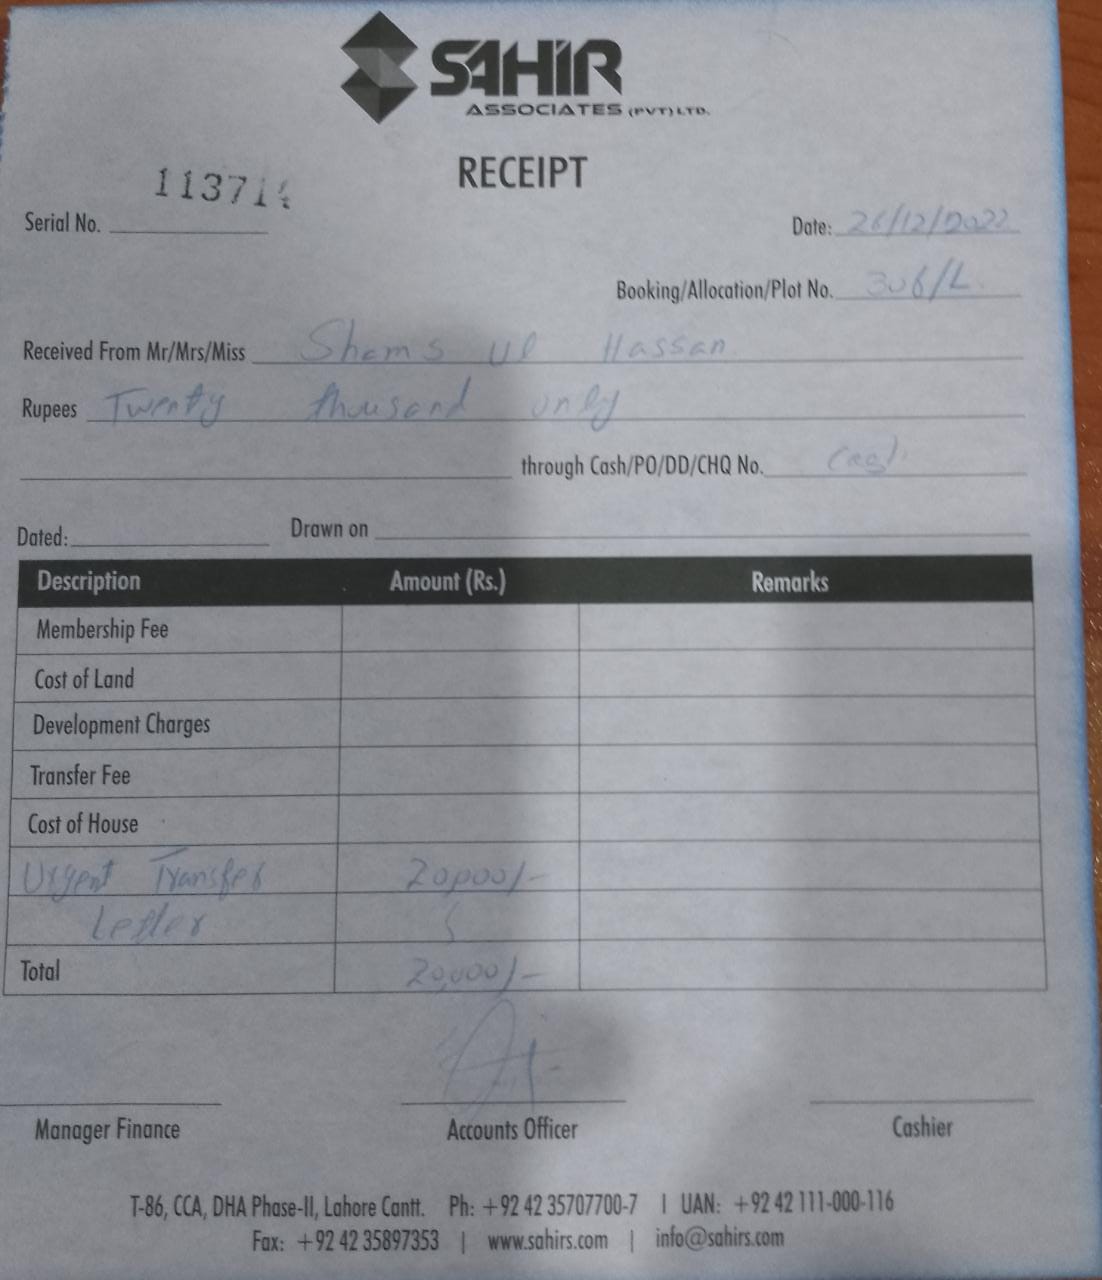 SAHIR
ASSOCIATES (PVT) LTD.
RECEIPT
Serial No. 11371
Date: 26/12/2022
Booking/Allocation/Plot No. 306/L
Received From Mr/Mrs/Miss Shams ul Hassan
Rupees Twenty thousand only
through Cash/PO/DD/CHQ No. Cash
Dated: Drawn on
Description Amount (Rs.) Remarks
Membership Fee
Cost of Land
Development Charges
Transfer Fee
Cost of House
Urgent Transfer 20,000/-
Letter
Total 20,000/-
Manager Finance Accounts Officer Cashier
T-86, CCA, DHA Phase-II, Lahore Cantt. Ph: +92 42 35707700-7 | UAN: +92 42 111-000-116
Fax: +92 42 35897353 | www.sahirs.com | info@sahirs.com